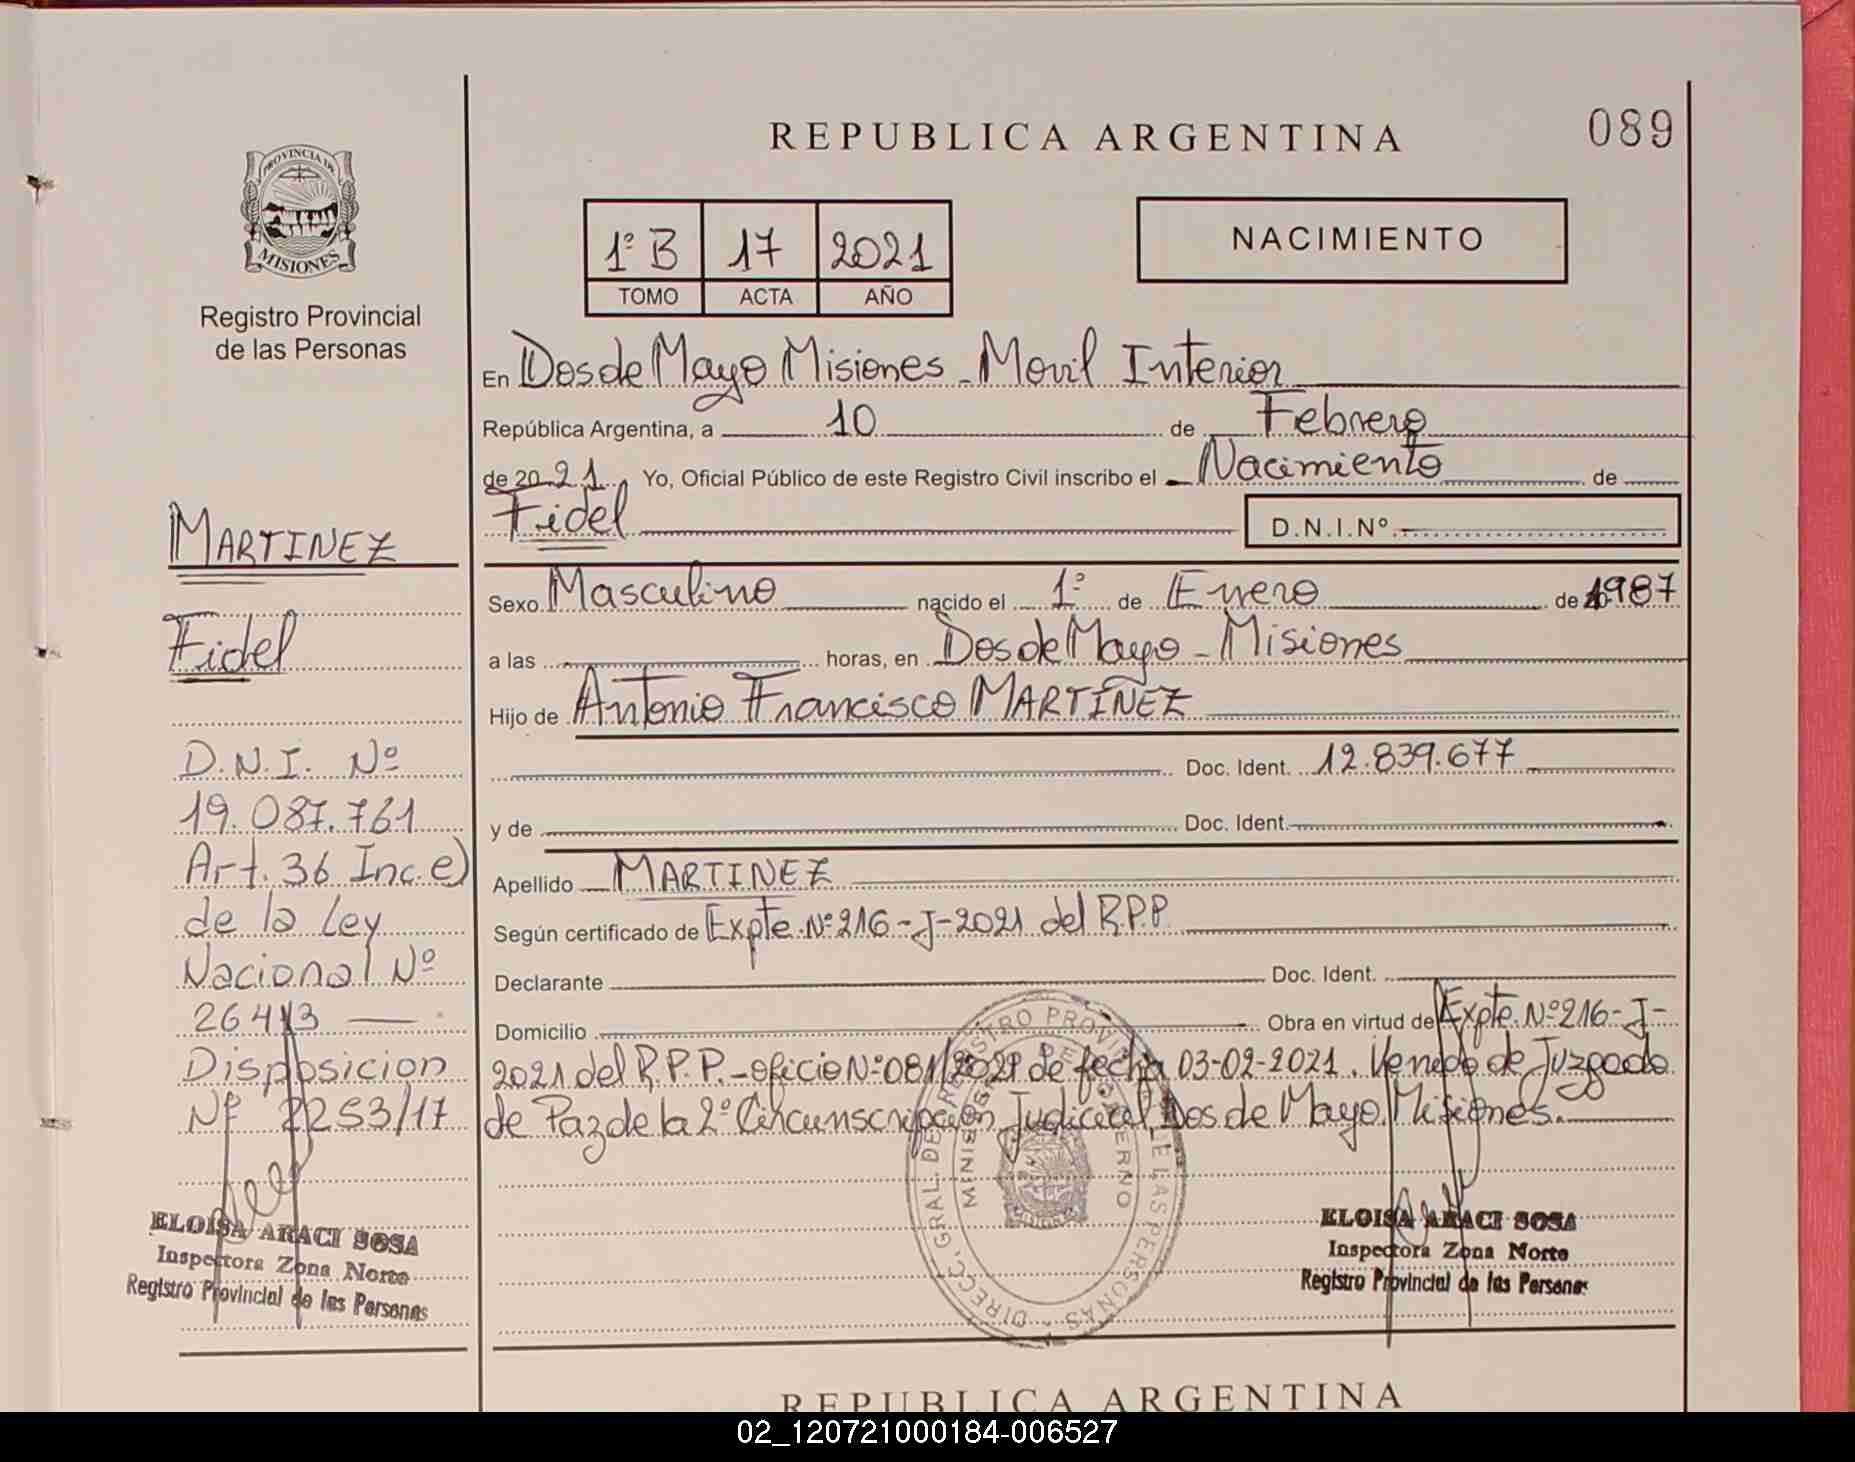 REPUBLICA ARGENTINA
089
PROVINCIA DE
MISIONES
Registro Provincial
de las Personas
1º B 17 2021
TOMO ACTA AÑO
NACIMIENTO
En Dos de Mayo Misiones - Movil Interior
República Argentina, a 10 de Febrero
de 2021 Yo, Oficial Público de este Registro Civil inscribo el Nacimiento de
Fidel D.N.I.Nº
Sexo Masculino nacido el 1º de Enero de 1987
a las horas, en Dos de Mayo - Misiones
Hijo de Antonio Francisco MARTÍNEZ
Doc. Ident. 12.839.677
y de Doc. Ident.
Apellido MARTINEZ
Según certificado de Expte. Nº 216-J-2021 del R.P.P.
Declarante Doc. Ident.
Domicilio Obra en virtud de Expte. Nº 216-J-
2021 del R.P.P. - oficio Nº 081/2021 de fecha 03-02-2021. Venido de Juzgado
de Paz de la 2º Circunscripción Judicial, Dos de Mayo, Misiones.
MARTINEZ
Fidel
D.N.I. Nº
19.087.761
Art. 36 Inc. e)
de la Ley
Nacional Nº
26413
Disposicion
Nº 2253/17
ELOISA ARACI SOSA
Inspectora Zona Norte
Registro Provincial de las Personas
DIRECC. GRAL. DE REGISTRO PROVINCIAL DE LAS PERSONAS
MINISTERIO DE GOBIERNO
ELOISA ARACI SOSA
Inspectora Zona Norte
Registro Provincial de las Personas
REPUBLICA ARGENTINA
02_120721000184-006527